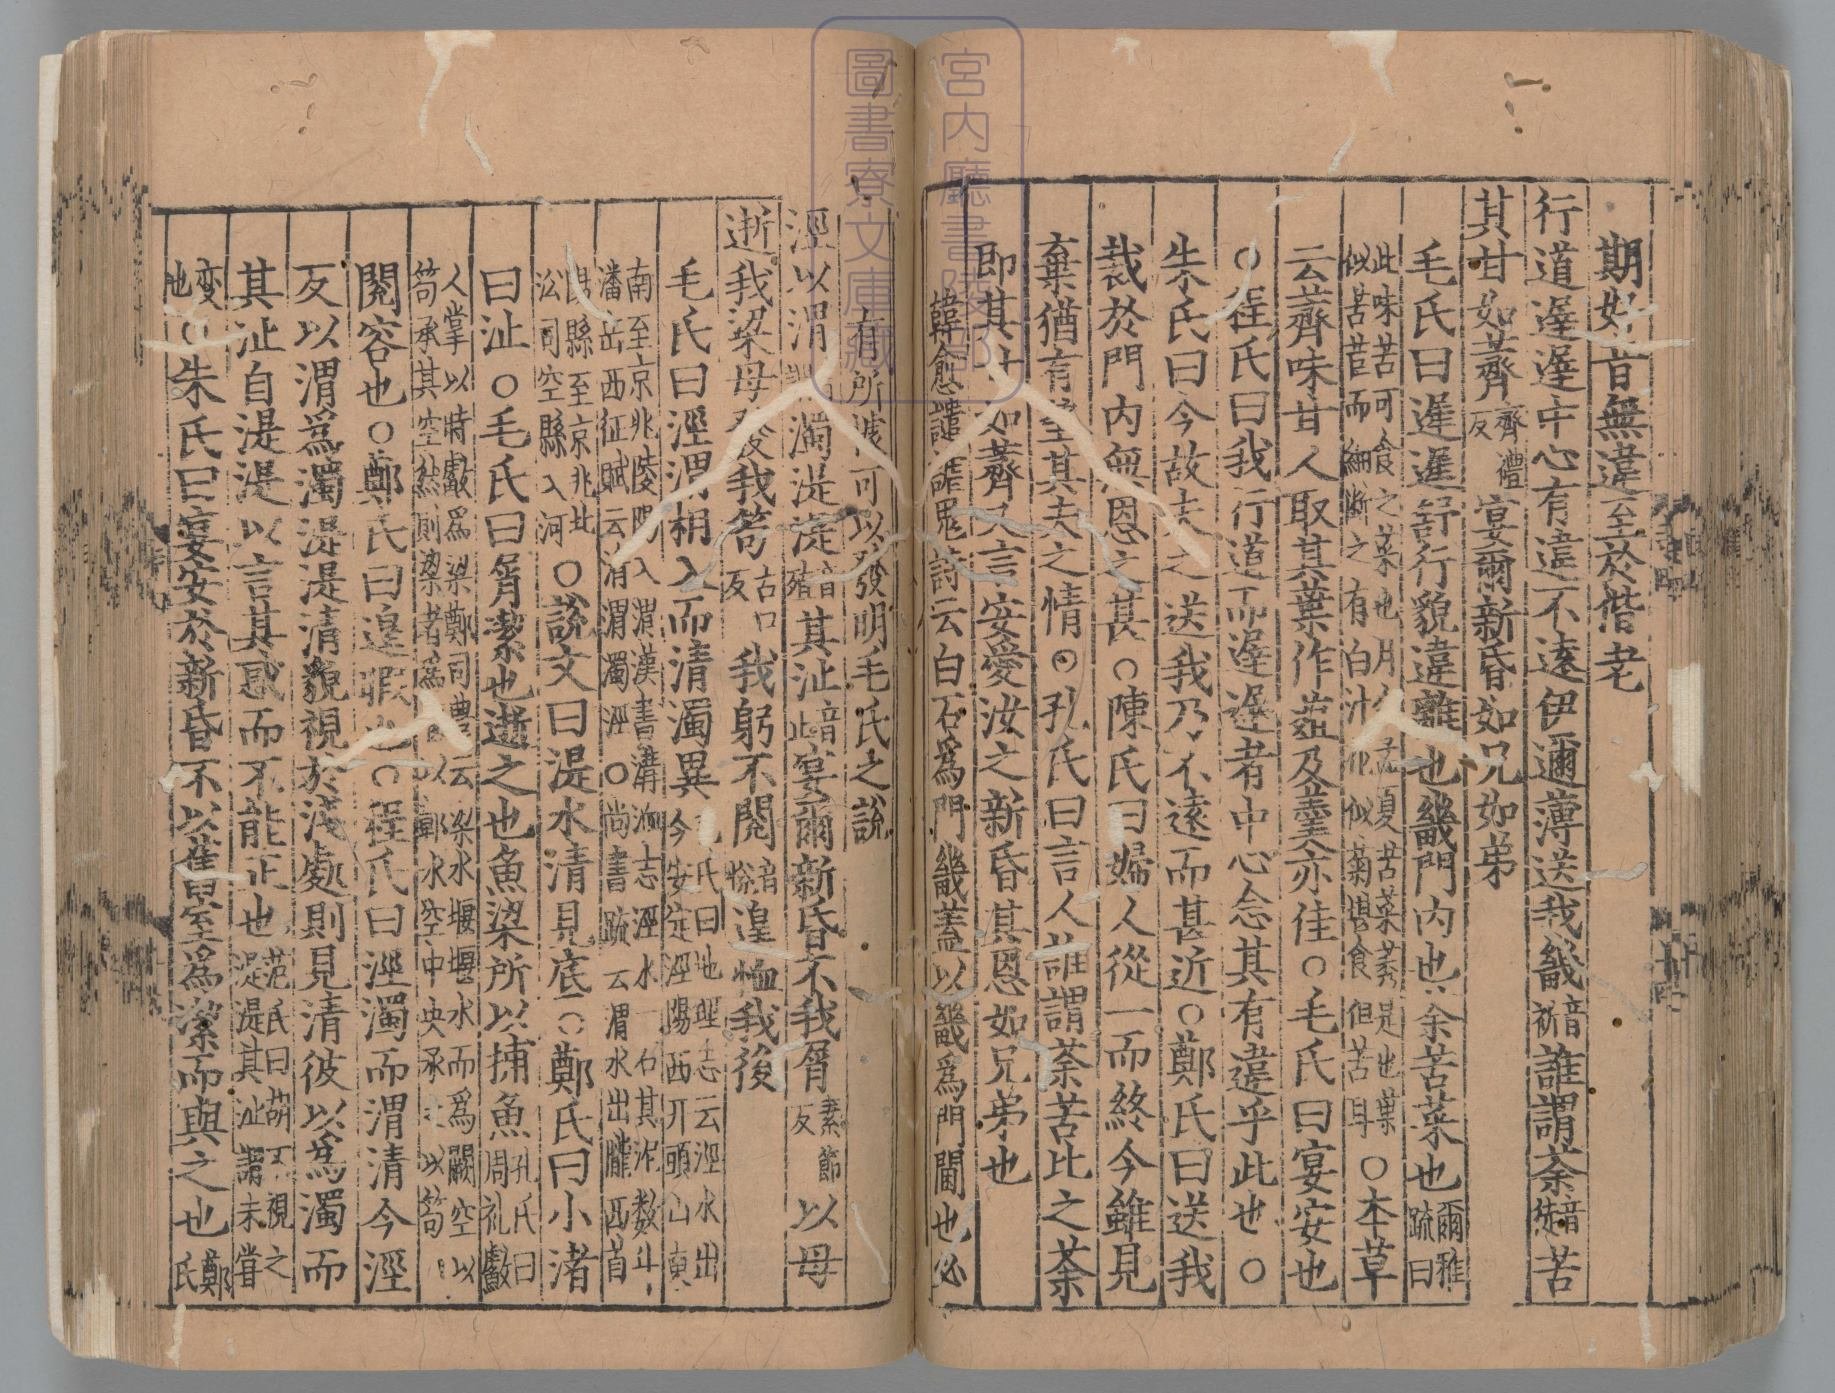 期好音無違至於偕老
行道遲遲中心有違不遠伊邇薄送我畿音祈誰謂荼音徒苦
其甘如薺齊禮反宴爾新昏如兄如弟
毛氏曰遲遲舒行貌違離也畿門内也荼苦菜也爾雅疏曰
此味苦可食之菜也月令孟夏苦菜秀是也葉似苦苣而細斷之有白汁花似菊堪食但苦耳○本草
云薺味甘人取其葉作菹及羹亦佳○毛氏曰宴安也
○程氏曰我行道而遲遲者中心念其有違乎此也○
朱氏曰今故夫之送我乃不遠而甚近○鄭氏曰送我
裁於門内無恩之甚○陳氏曰婦人從一而終今雖見
棄猶有望其夫之情○孔氏曰言人誰謂荼苦比之荼
即其甘如薺又言安愛汝之新昏其恩如兄弟也
韓愈譴瘧鬼詩云白石爲門畿蓋以畿爲門閫也必
有所據可以發明毛氏之說
涇以渭音謂濁湜湜音殖其沚音止宴爾新昏不我屑素節反以毋
逝我梁毋發我笱古口反我躬不閱音悅遑恤我後
毛氏曰涇渭相入而清濁異孔氏曰地理志云涇水出今安定涇陽西幵頭山東
南至京兆陵陽入渭漢書溝洫志涇水一石其泥数斗潘岳西征賦云清渭濁涇○尚書疏云渭水出隴西首
陽縣至京兆北㳂司空縣入河○說文曰湜水清見底○鄭氏曰小渚
曰沚○毛氏曰屑潔也逝之也魚梁所以捕魚孔氏曰周礼䱷
人掌以時䱷爲梁鄭司農云梁水堰堰水而爲闕空以笱承其空然則梁者爲堰以鄣水空中央承之以笱
閱容也○鄭氏曰遑暇也○程氏曰涇濁而渭清今涇
反以渭爲濁湜湜清貌視於淺處則見清彼以爲濁而
其沚自湜湜以言其惑而不能正也范氏曰胡不視之湜湜其沚謂未嘗
変也○朱氏曰宴安於新昏不以舊室爲潔而與之也鄭氏
宮内廳書陵部
圖書寮文庫藏